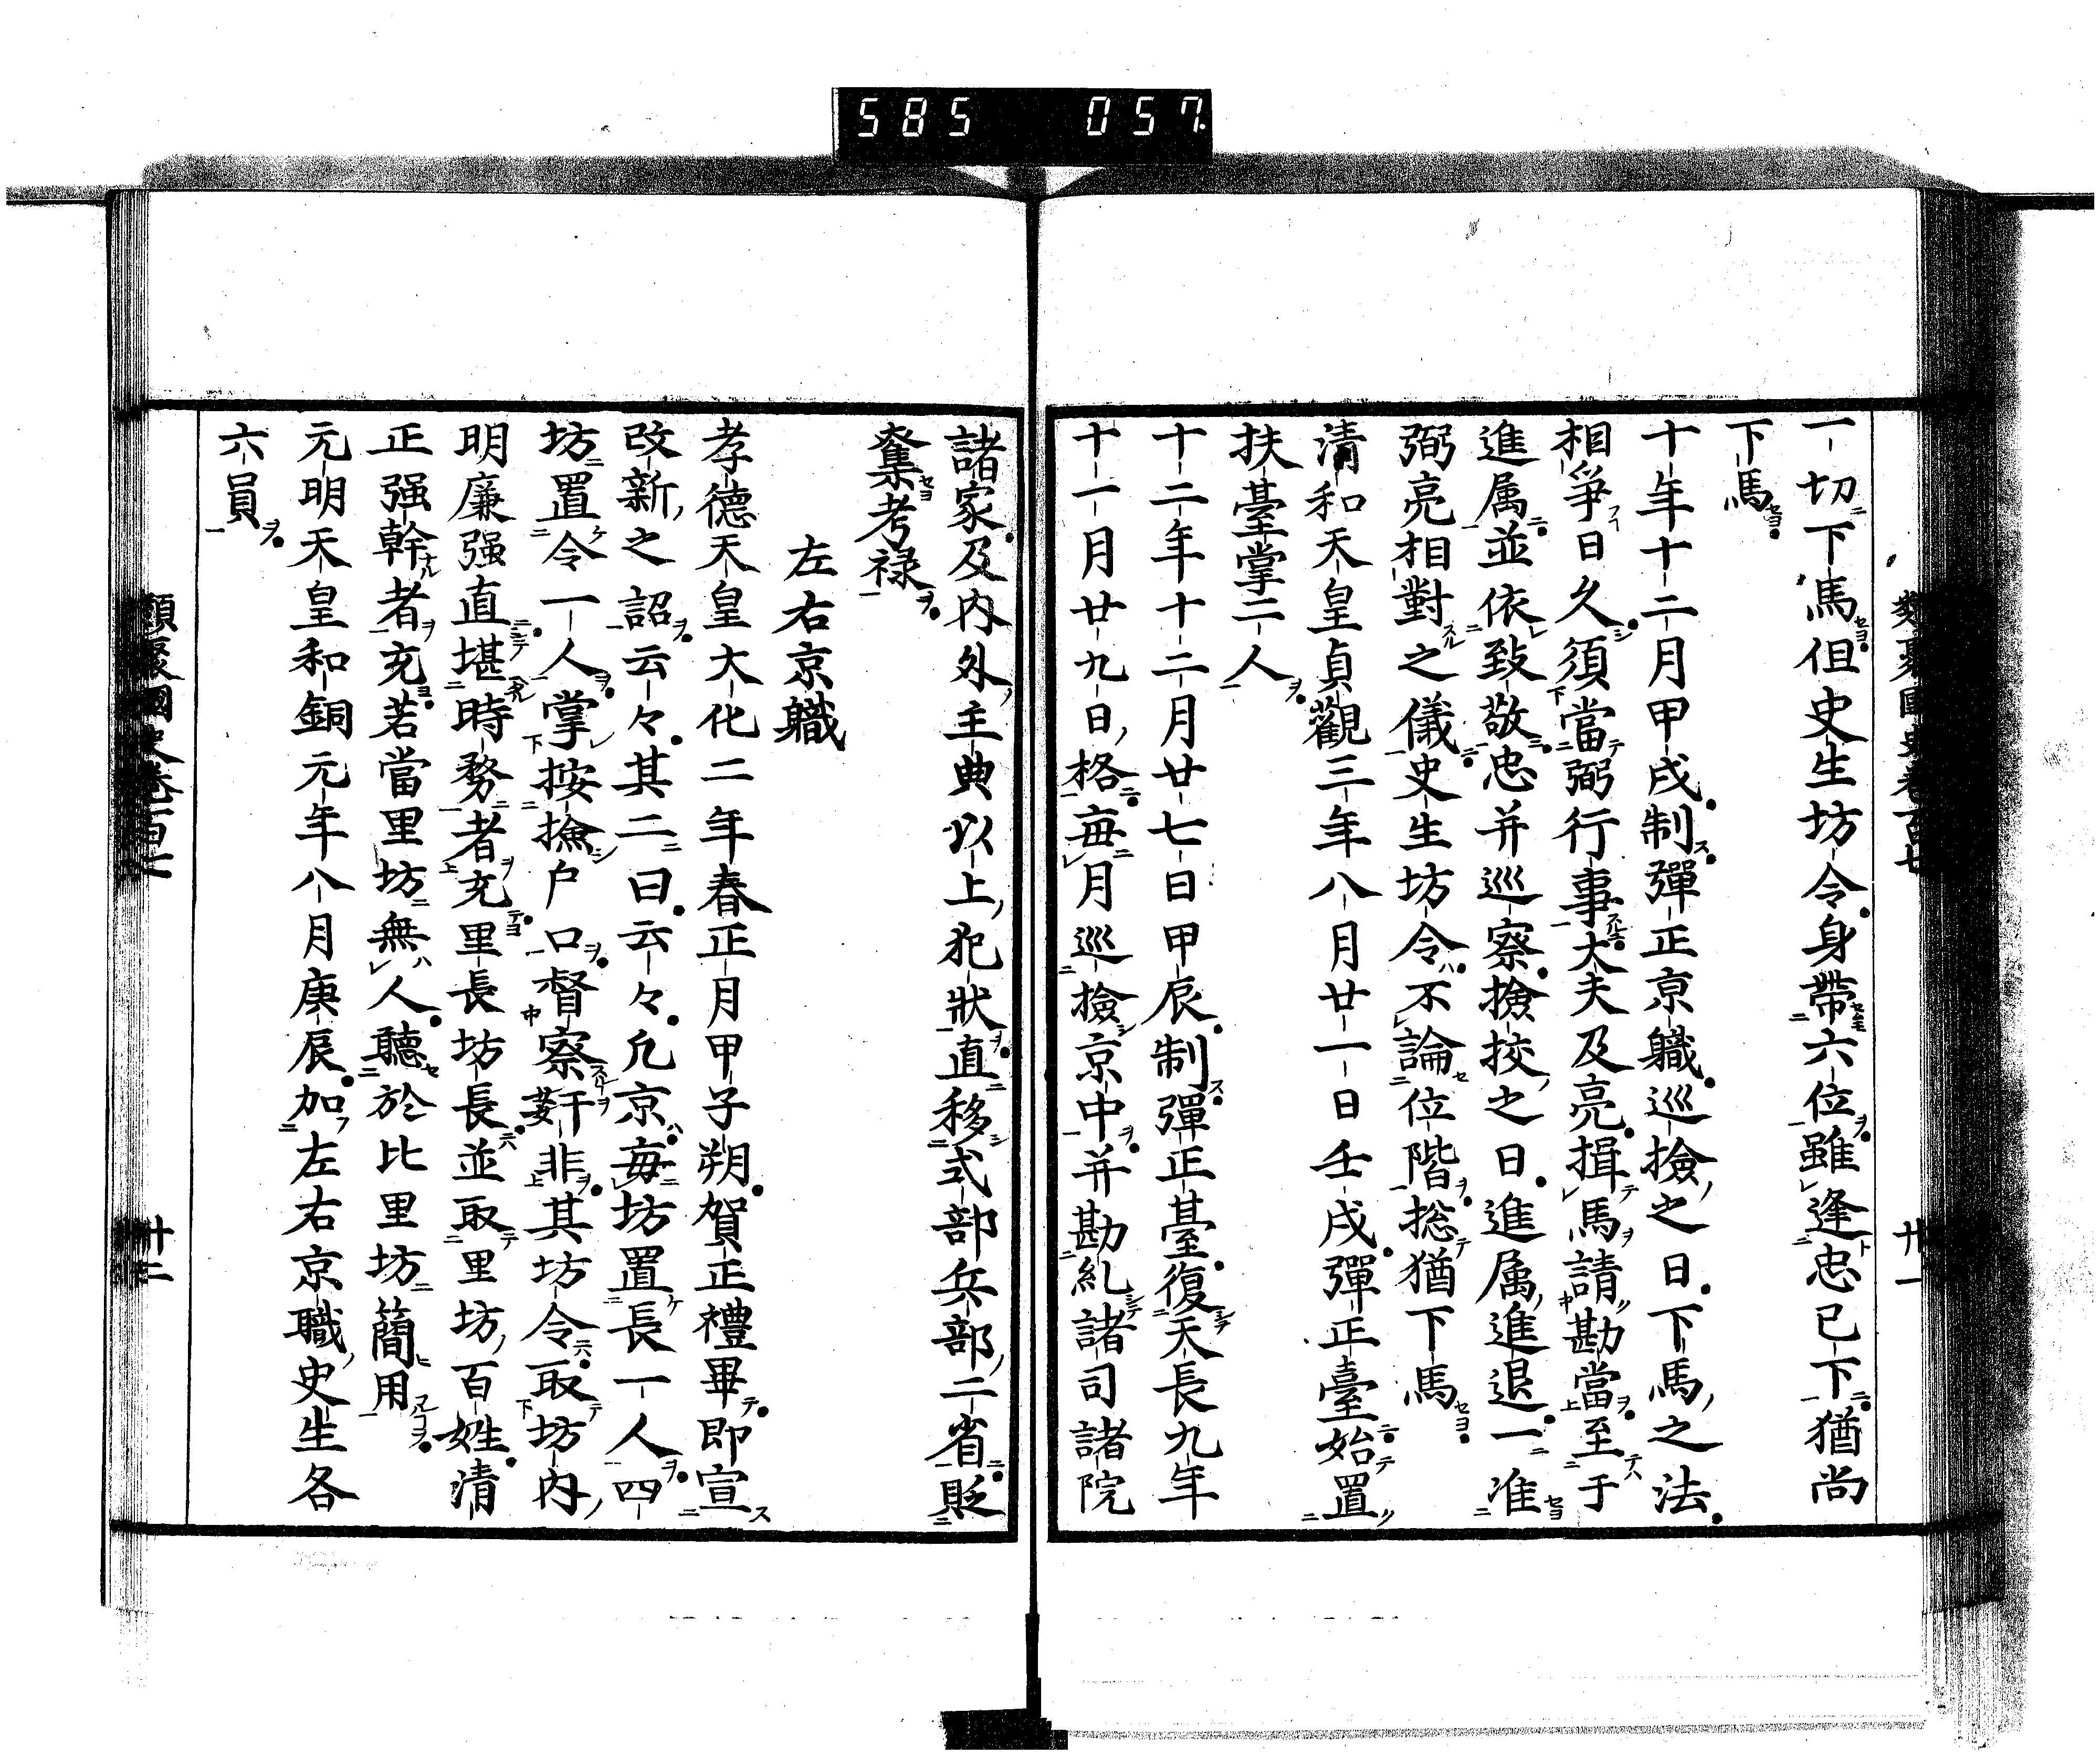 585 057
類聚國史卷百七 廿一
一切下馬但史生坊令身帶六位雖逢忠已下猶尚
下馬
十年十二月甲戌制彈正京職巡撿之日下馬之法
相爭日久須當弼行事大夫及亮揖馬請勘當至于
進属並依致敬忠并巡察撿挍之日進属進退一准
弼亮相對之儀史生坊令不論位階惣猶下馬
清和天皇貞觀三年八月廿一日壬戌彈正臺始置
扶臺掌二人
十二年十二月廿七日甲辰制彈正臺復天長九年
十一月廿九日格每月巡撿京中并勘糺諸司諸院
諸家及内外主典以上犯狀直移式部兵部二省貶
奪考禄
左右京職
孝德天皇大化二年春正月甲子朔賀正禮畢即宣
改新之詔云々其二曰云々凡京每坊置長一人四
坊置令一人掌按撿户口督察奸非其坊令取坊内
明廉强直堪時務者充里長坊長並取里坊百姓清
正强幹者充若當里坊無人聽於比里坊簡用
元明天皇和銅元年八月庚辰加左右京職史生各
六員
類聚國史卷百七 廿二